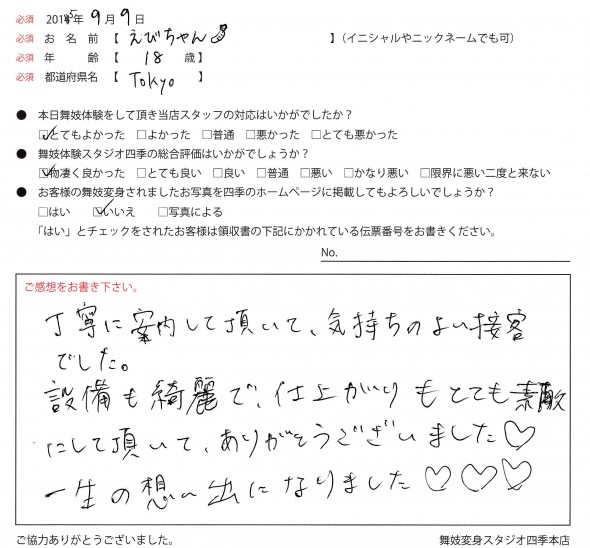 必須 2015年 9月 9日
必須 お名前 【 えびちゃん 】(イニシャルやニックネームでも可)
必須 年 齢 【 18 歳】
必須 都道府県名 【 Tokyo 】
● 本日舞妓体験をして頂き当店スタッフの対応はいかがでしたか？
☑とてもよかった □よかった □普通 □悪かった □とても悪かった
● 舞妓体験スタジオ四季の総合評価はいかがでしょうか？
☑物凄く良かった □とても良い □良い □普通 □悪い □かなり悪い □限界に悪い二度と来ない
● お客様の舞妓変身されましたお写真を四季のホームページに掲載してもよろしいでしょうか？
□はい ☑いいえ □写真による
「はい」とチェックをされたお客様は領収書の下記にかかれている伝票番号をお書きください。
No.
ご感想をお書き下さい。
丁寧に案内して頂いて、気持ちのよい接客
でした。
設備も綺麗で、仕上がりもとても素敵
にして頂いて、ありがとうございました♡
一生の想い出になりました♡♡♡
ご協力ありがとうございました。 舞妓変身スタジオ四季本店